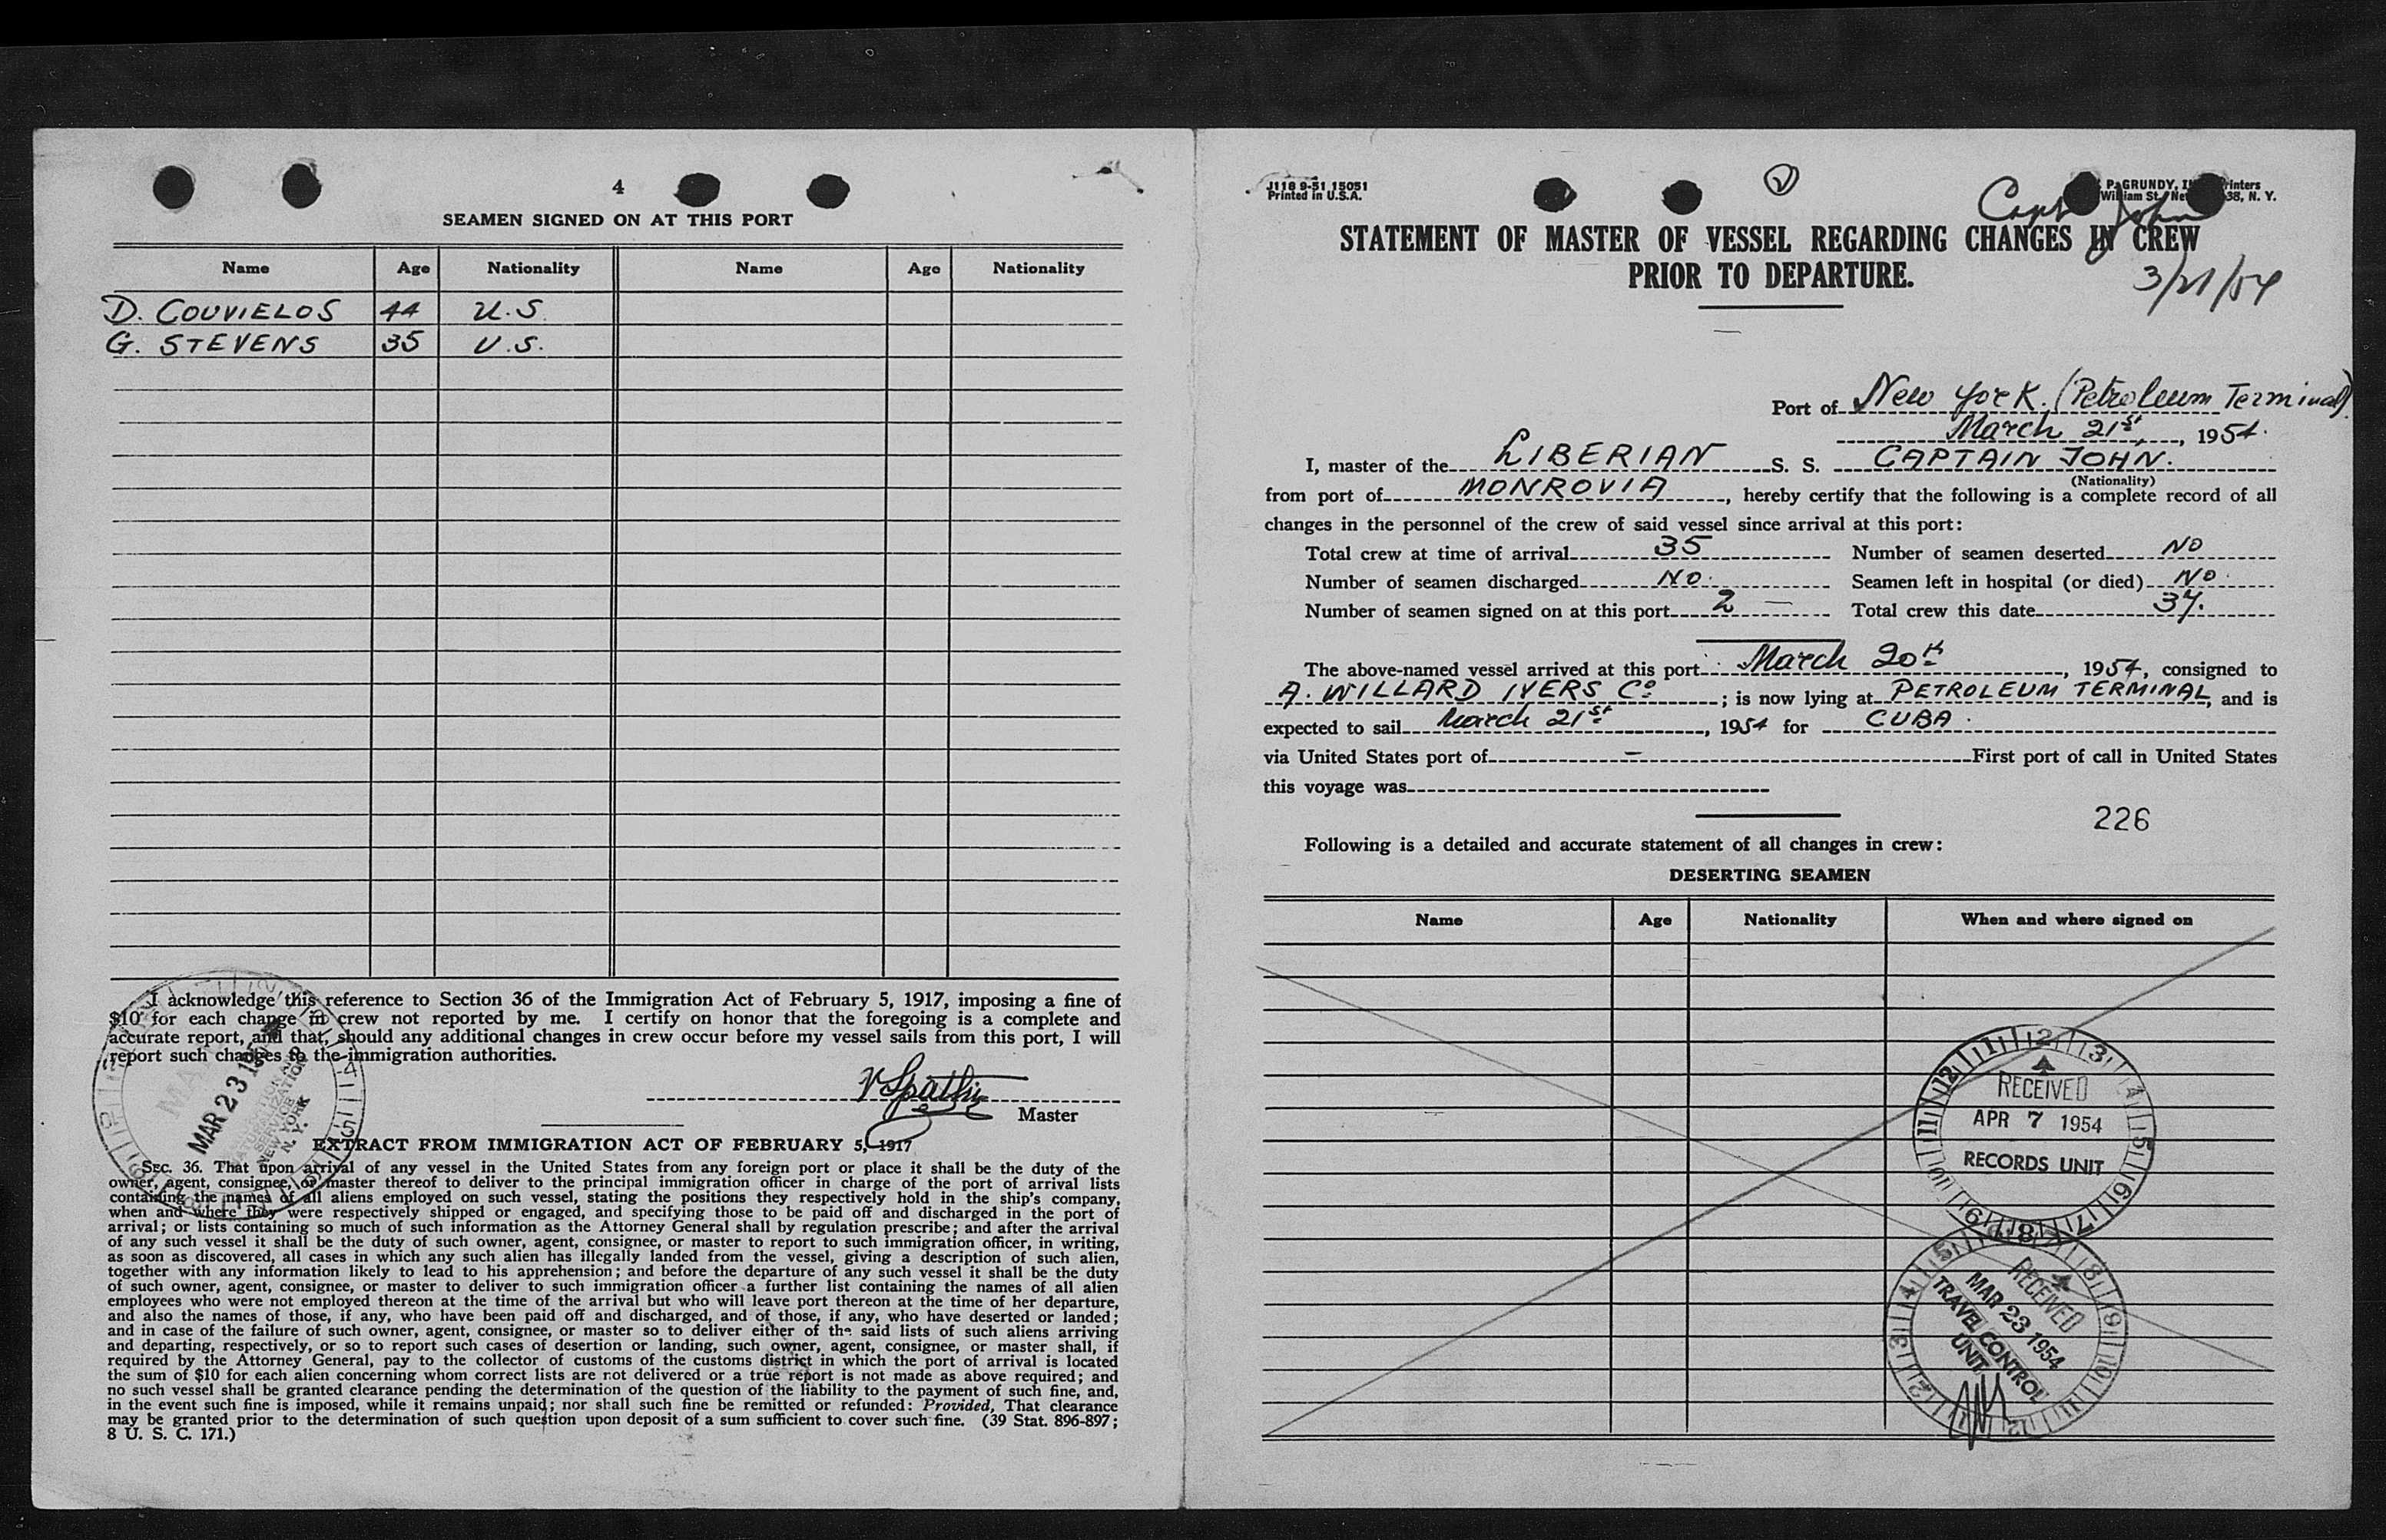 4
SEAMEN SIGNED ON AT THIS PORT
Name Age Nationality Name Age Nationality
D. COUVIELOS 44 U.S.
G. STEVENS 35 U.S.
I acknowledge this reference to Section 36 of the Immigration Act of February 5, 1917, imposing a fine of
$10 for each change in crew not reported by me. I certify on honor that the foregoing is a complete and
accurate report, and that, should any additional changes in crew occur before my vessel sails from this port, I will
report such changes to the immigration authorities.
MAR 23 195
SERVICE
NEW YORK
N. Y.
Master
EXTRACT FROM IMMIGRATION ACT OF FEBRUARY 5, 1917
SEC. 36. That upon arrival of any vessel in the United States from any foreign port or place it shall be the duty of the
owner, agent, consignee, or master thereof to deliver to the principal immigration officer in charge of the port of arrival lists
containing the names of all aliens employed on such vessel, stating the positions they respectively hold in the ship's company,
when and where they were respectively shipped or engaged, and specifying those to be paid off and discharged in the port of
arrival; or lists containing so much of such information as the Attorney General shall by regulation prescribe; and after the arrival
of any such vessel it shall be the duty of such owner, agent, consignee, or master to report to such immigration officer, in writing,
as soon as discovered, all cases in which any such alien has illegally landed from the vessel, giving a description of such alien,
together with any information likely to lead to his apprehension; and before the departure of any such vessel it shall be the duty
of such owner, agent, consignee, or master to deliver to such immigration officer a further list containing the names of all alien
employees who were not employed thereon at the time of the arrival but who will leave port thereon at the time of her departure,
and also the names of those, if any, who have been paid off and discharged, and of those, if any, who have deserted or landed;
and in case of the failure of such owner, agent, consignee, or master so to deliver either of the said lists of such aliens arriving
and departing, respectively, or so to report such cases of desertion or landing, such owner, agent, consignee, or master shall, if
required by the Attorney General, pay to the collector of customs of the customs district in which the port of arrival is located
the sum of $10 for each alien concerning whom correct lists are not delivered or a true report is not made as above required; and
no such vessel shall be granted clearance pending the determination of the question of the liability to the payment of such fine, and,
in the event such fine is imposed, while it remains unpaid; nor shall such fine be remitted or refunded: Provided, That clearance
may be granted prior to the determination of such question upon deposit of a sum sufficient to cover such fine. (39 Stat. 896-897;
8 U. S. C. 171.)
J118 9-51 15051
Printed in U.S.A.
P. GRUNDY, Printers
William St., 38, N. Y.
Capt John
STATEMENT OF MASTER OF VESSEL REGARDING CHANGES IN CREW
PRIOR TO DEPARTURE.
3/21/54
Port of New York. (Petroleum Terminal).
March 21st, 1954.
I, master of the LIBERIAN S. S. CAPTAIN JOHN.
(Nationality)
from port of MONROVIA, hereby certify that the following is a complete record of all
changes in the personnel of the crew of said vessel since arrival at this port:
Total crew at time of arrival 35 Number of seamen deserted NO
Number of seamen discharged NO. Seamen left in hospital (or died) NO.
Number of seamen signed on at this port 2 — Total crew this date 37.
The above-named vessel arrived at this port March 20th, 1954, consigned to
A. WILLARD IVERS Co; is now lying at PETROLEUM TERMINAL, and is
expected to sail March 21st, 1954 for CUBA.
via United States port of – First port of call in United States
this voyage was
226
Following is a detailed and accurate statement of all changes in crew:
DESERTING SEAMEN
Name Age Nationality When and where signed on
RECEIVED
APR 7 1954
RECORDS UNIT
RECEIVED
MAR 23 1954
TRAVEL CONTROL
UNIT